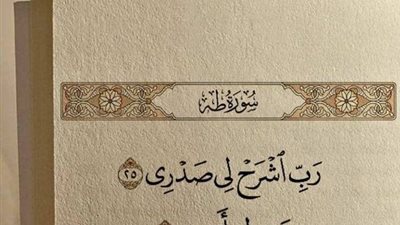 سُورَةُ طه
رَبِّ ٱشْرَحْ لِى صَدْرِى ٢٥